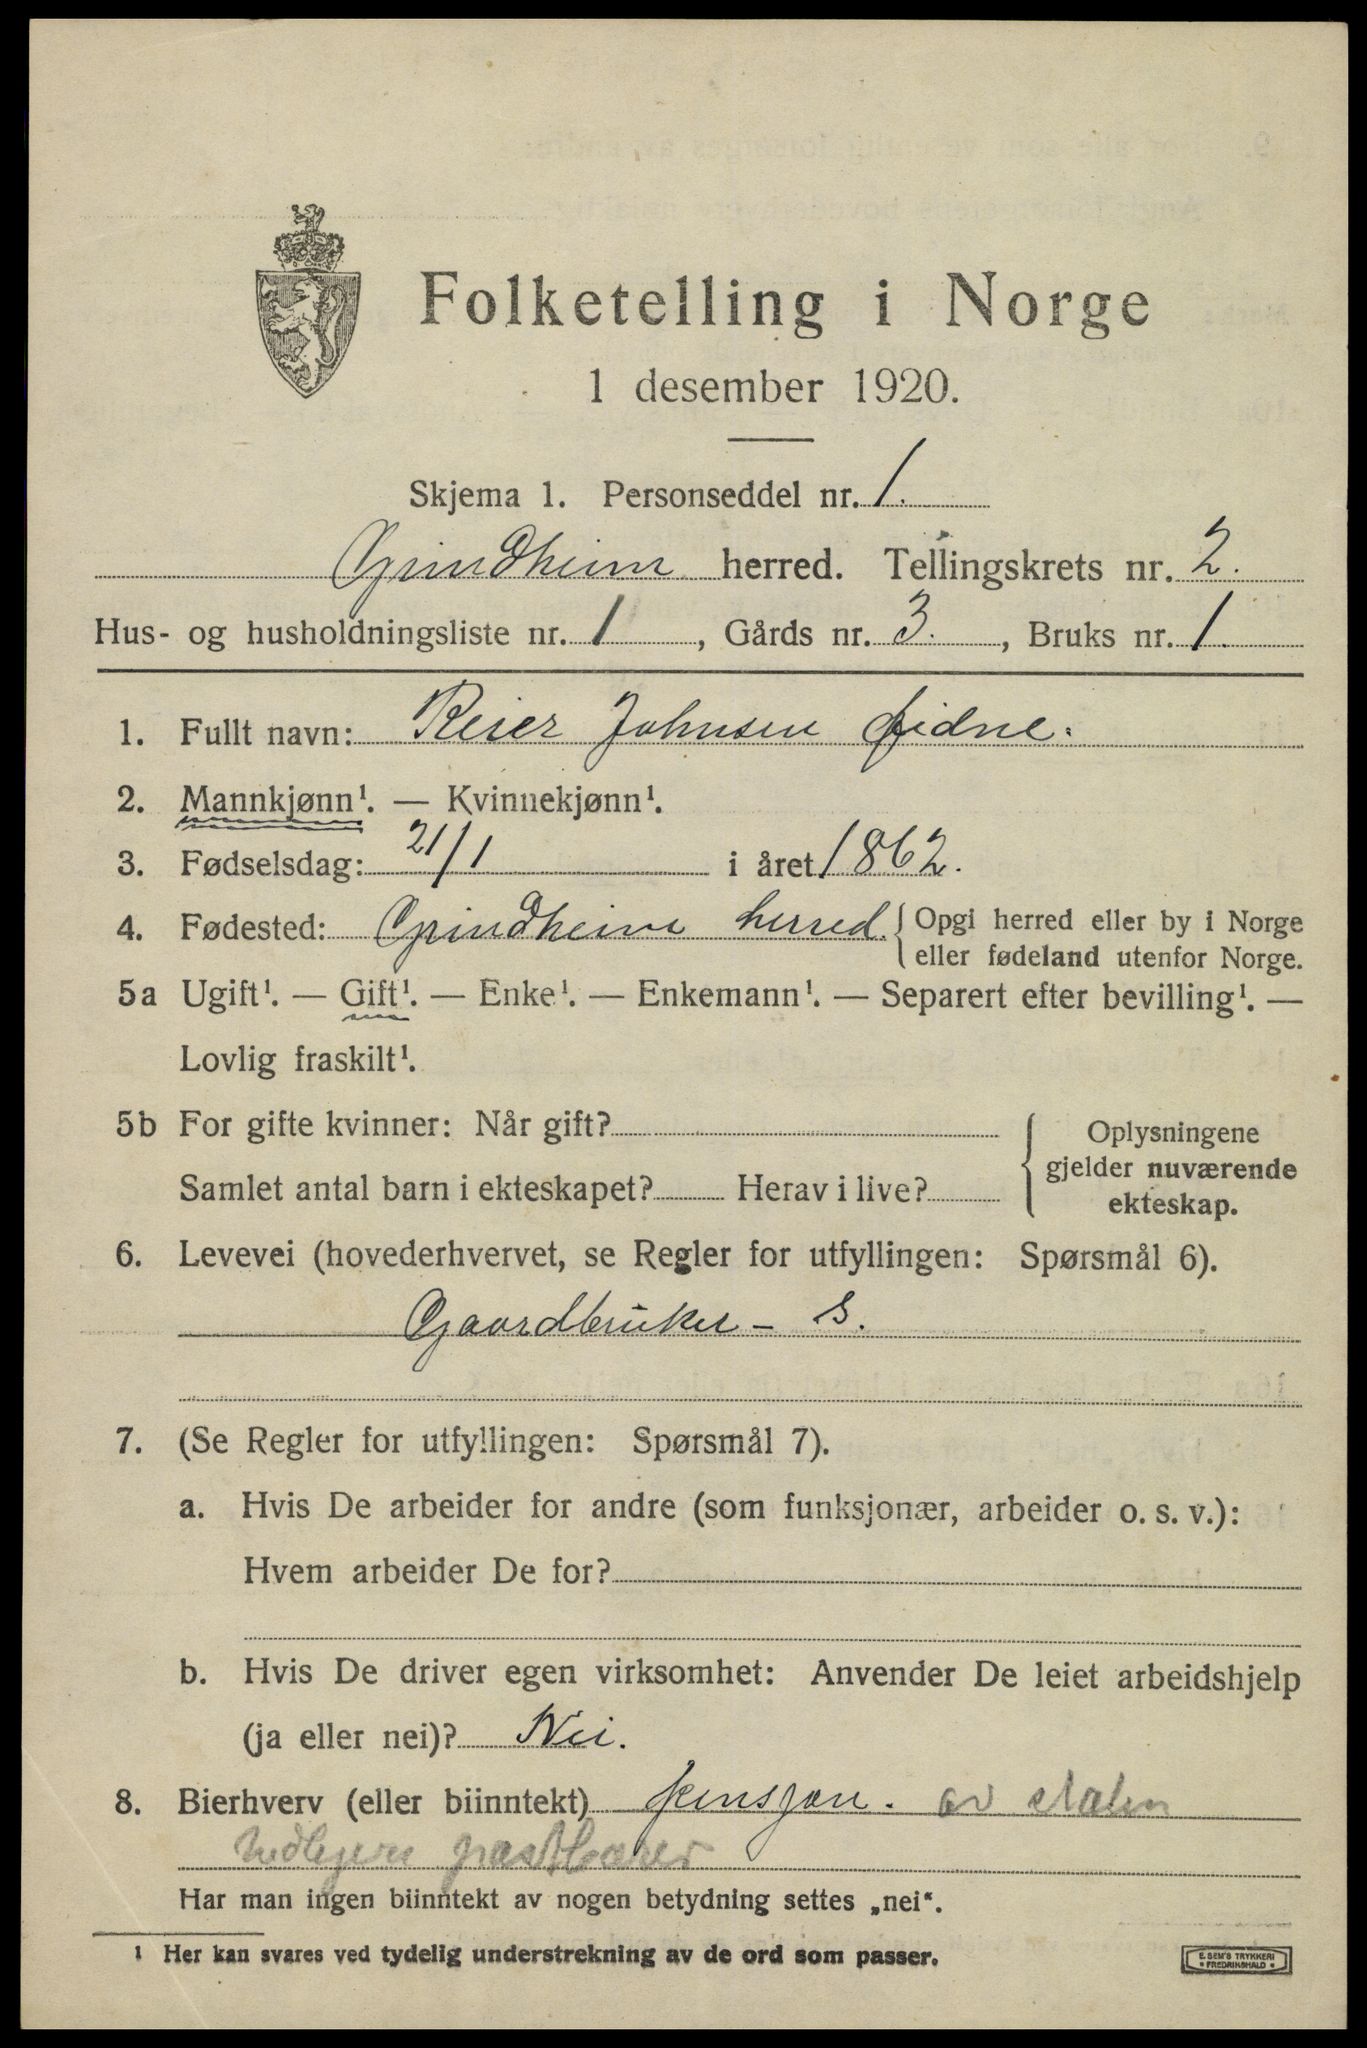 Folketelling i Norge
1 desember 1920.
Skjema 1. Personseddel nr. 1.
Grindheim herred. Tellingskrets nr. 2.
Hus- og husholdningsliste nr. 1, Gårds nr. 3., Bruks nr. 1.
1. Fullt navn: Reier Johnsen Fidne.
2. Mannkjønn¹. — Kvinnekjønn¹.
3. Fødselsdag: 21/1 i året 1862.
4. Fødested: Grindheim herred. { Opgi herred eller by i Norge
eller fødeland utenfor Norge.
5a Ugift¹. — Gift¹. — Enke¹. — Enkemann¹. — Separert efter bevilling¹. —
Lovlig fraskilt¹.
5b For gifte kvinner: Når gift?
Samlet antal barn i ekteskapet? Herav i live?
Oplysningene
gjelder nuværende
ekteskap.
6. Levevei (hovederhvervet, se Regler for utfyllingen: Spørsmål 6).
Gaardbruker - S.
7. (Se Regler for utfyllingen: Spørsmål 7).
a. Hvis De arbeider for andre (som funksjonær, arbeider o. s. v.):
Hvem arbeider De for?
b. Hvis De driver egen virksomhet: Anvender De leiet arbeidshjelp
(ja eller nei)? Nei.
8. Bierhverv (eller biinntekt) pensjon. av staten
tidligere postbærer
Har man ingen biinntekt av nogen betydning settes „nei“.
¹ Her kan svares ved tydelig understrekning av de ord som passer.
E. SEM'S TRYKKERI
FREDRIKSHALD